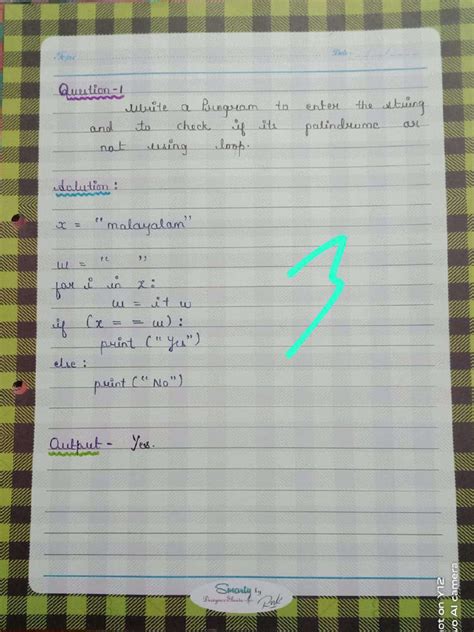 Date
Question-1
Write a Program to enter the string
and to check if its palindrome or
not using loop.
Solution:
x = "malayalam"
w = " "
for i in x:
w = i + w
if (x = = w):
print ("Yes")
else:
print ("No")
Output - Yes.
3
Smarty by